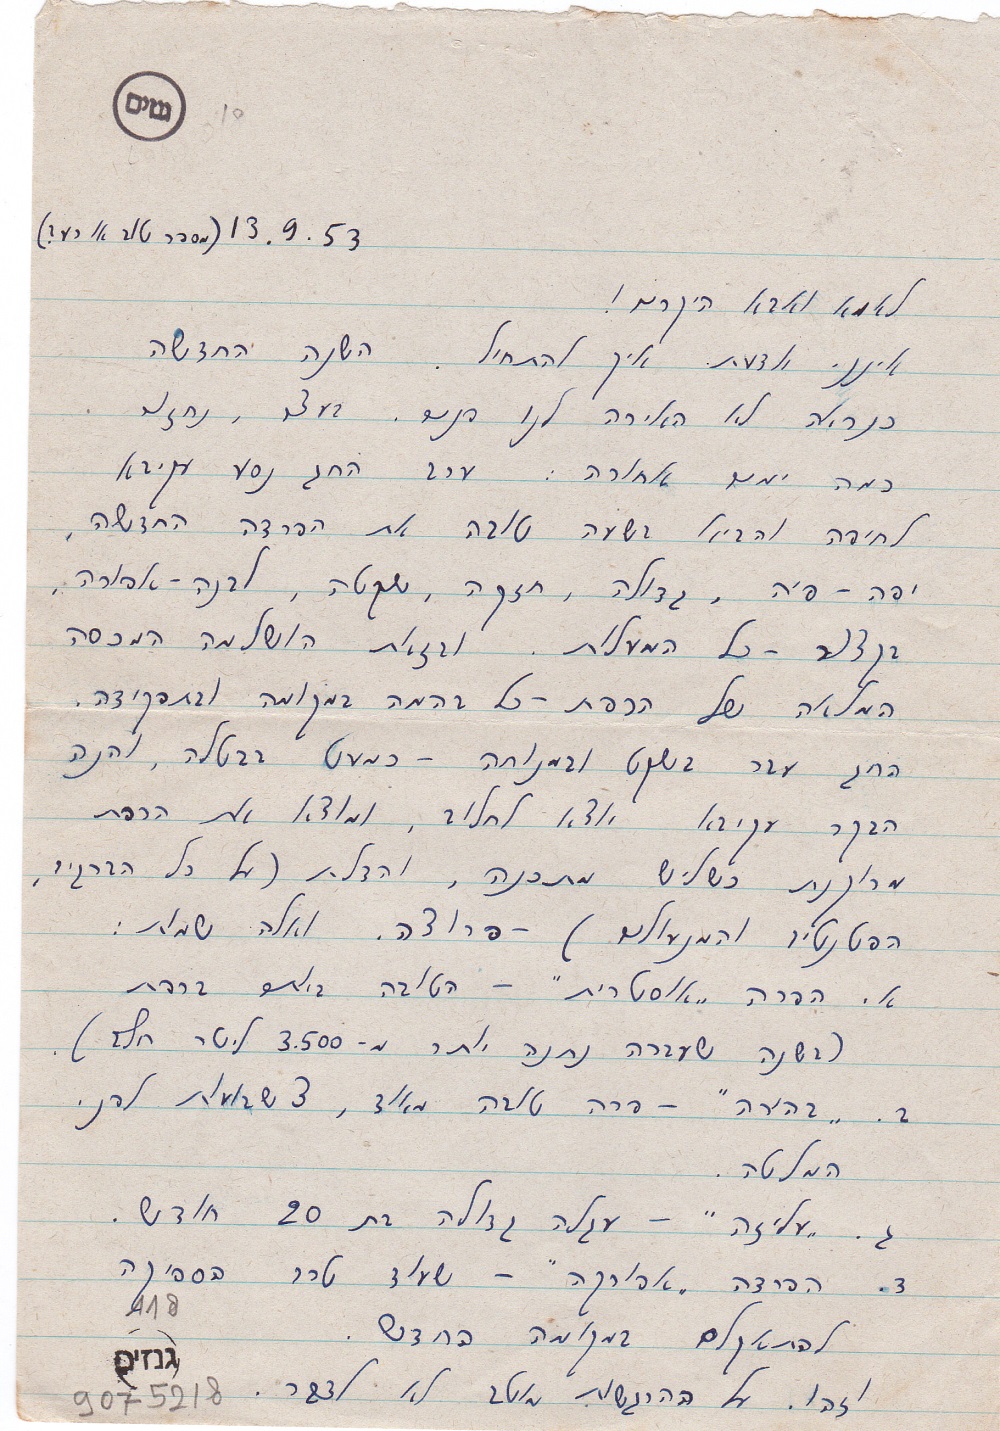 שים
13.9.53 (מספר טוב או רע?)
לאמא ואבא היקרים!
אינני יודעת איך להתחיל. השנה החדשה
כנראה לא האירה לנו פנים. בעצם, נחזור
כמה ימים אחורה: ערב החג נסע עקיבא
לחיפה והביא בשעה טובה את הפרדה החדשה,
יפה-פיה, גדולה, חזקה, שקטה, לבנה-אפורה,
בקצור - כל המעלות. ובזאת הושלמה המכסה
המלאה של הרפת - כל בהמה במקומה ובתפקידה.
החג עבר בשקט ובמנוחה - כמעט בבטלה, והנה
הבקר עקיבא יוצא לחלוב, ומוצא את הרפת
מרוקנת כשליש מתכנה, והדלת (על כל הברגיו,
הפטנטיו והמנעולים) - פרוצה. ואלה שמות:
א. הפרה "אוסטרית" - הטובה ביותר ברפת
(בשנה שעברה נתנה יותר מ-3.500 ליטר חלב).
ב. "בהירה" - פרה טובה מאוד, 3 שבועות לפני
המלטה.
ג. "עליזה" - עגלה גדולה בת 20 חודש.
ד. הפרדה "אפורקה" - שעוד טרם הספיקה
להתאקלם במקומה החדש.
וזהו. על ההרגשות מוטב לא לדבר.
118
גנזים
907 5218